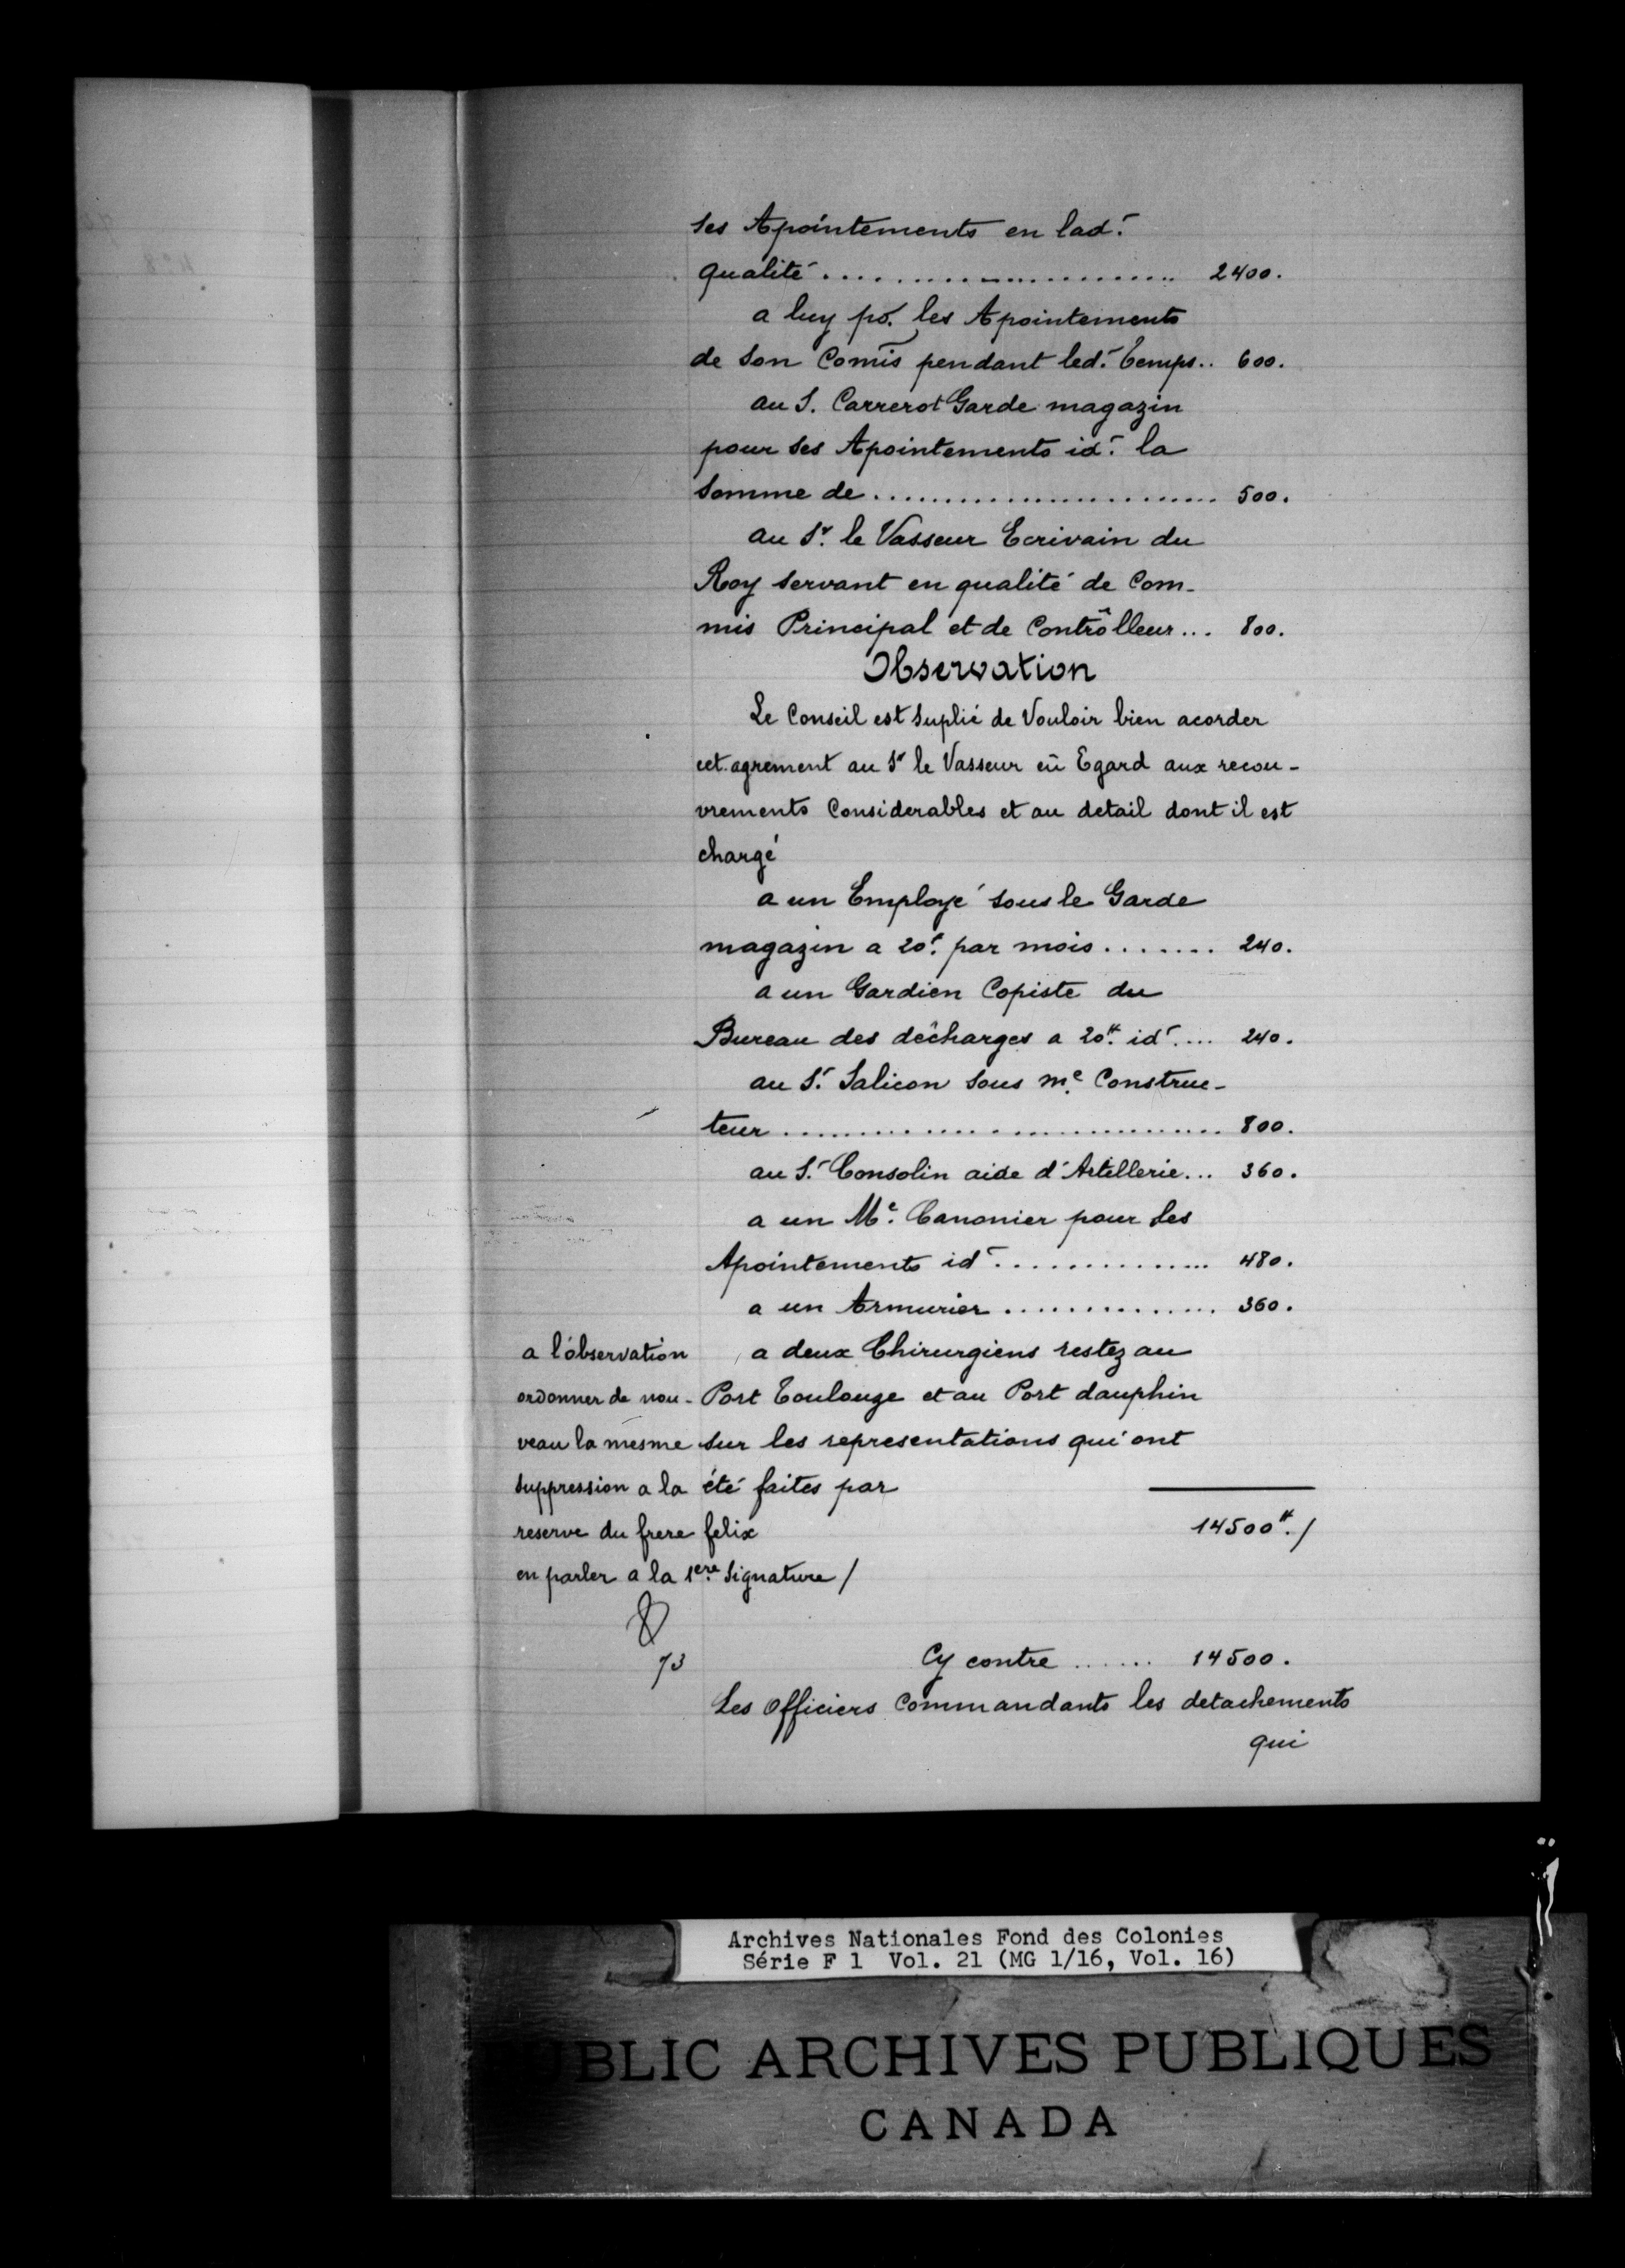 ses Apointements en lad.
qualité ........................ 2400.
a luy po. les Apointements
de son Comis pendant led. temps.. 600.
au S. Carrerot Garde magazin
pour ses Apointements id. la
somme de ........................ 500.
au Sr. le Vasseur Ecrivain du
Roy servant en qualité de Com-
mis Principal et de Contrôlleur... 800.
Observation
Le Conseil est suplié de Vouloir bien acorder
cet agrement au Sr le Vasseur eû Egard aux recou-
vrements Considerables et au detail dont il est
chargé
a un Employé sous le Garde
magazin a 20#. par mois ....... 240.
a un Gardien Copiste du
Bureau des décharges a 20#. id. ... 240.
au S. Salicon sous me. Construc-
teur .............................. 800.
au S. Consolin aide d'Artillerie... 360.
a un Me. Canonier pour ses
Apointements id ............... 480.
a un Armurier ............... 360.
a deux Chirurgiens restez au
Port Toulouze et au Port dauphin
sur les representations qui ont
été faites par
a l'observation
ordonner de nou-
veau la mesme
suppression a la
reserve du frere felix
en parler a la 1ere. signature /
14500#. /
73
Cy contre ...... 14500.
Les Officiers Commandants les detachements
qui
Archives Nationales Fond des Colonies
Série F 1 Vol. 21 (MG 1/16, Vol. 16)
PUBLIC ARCHIVES PUBLIQUES
CANADA